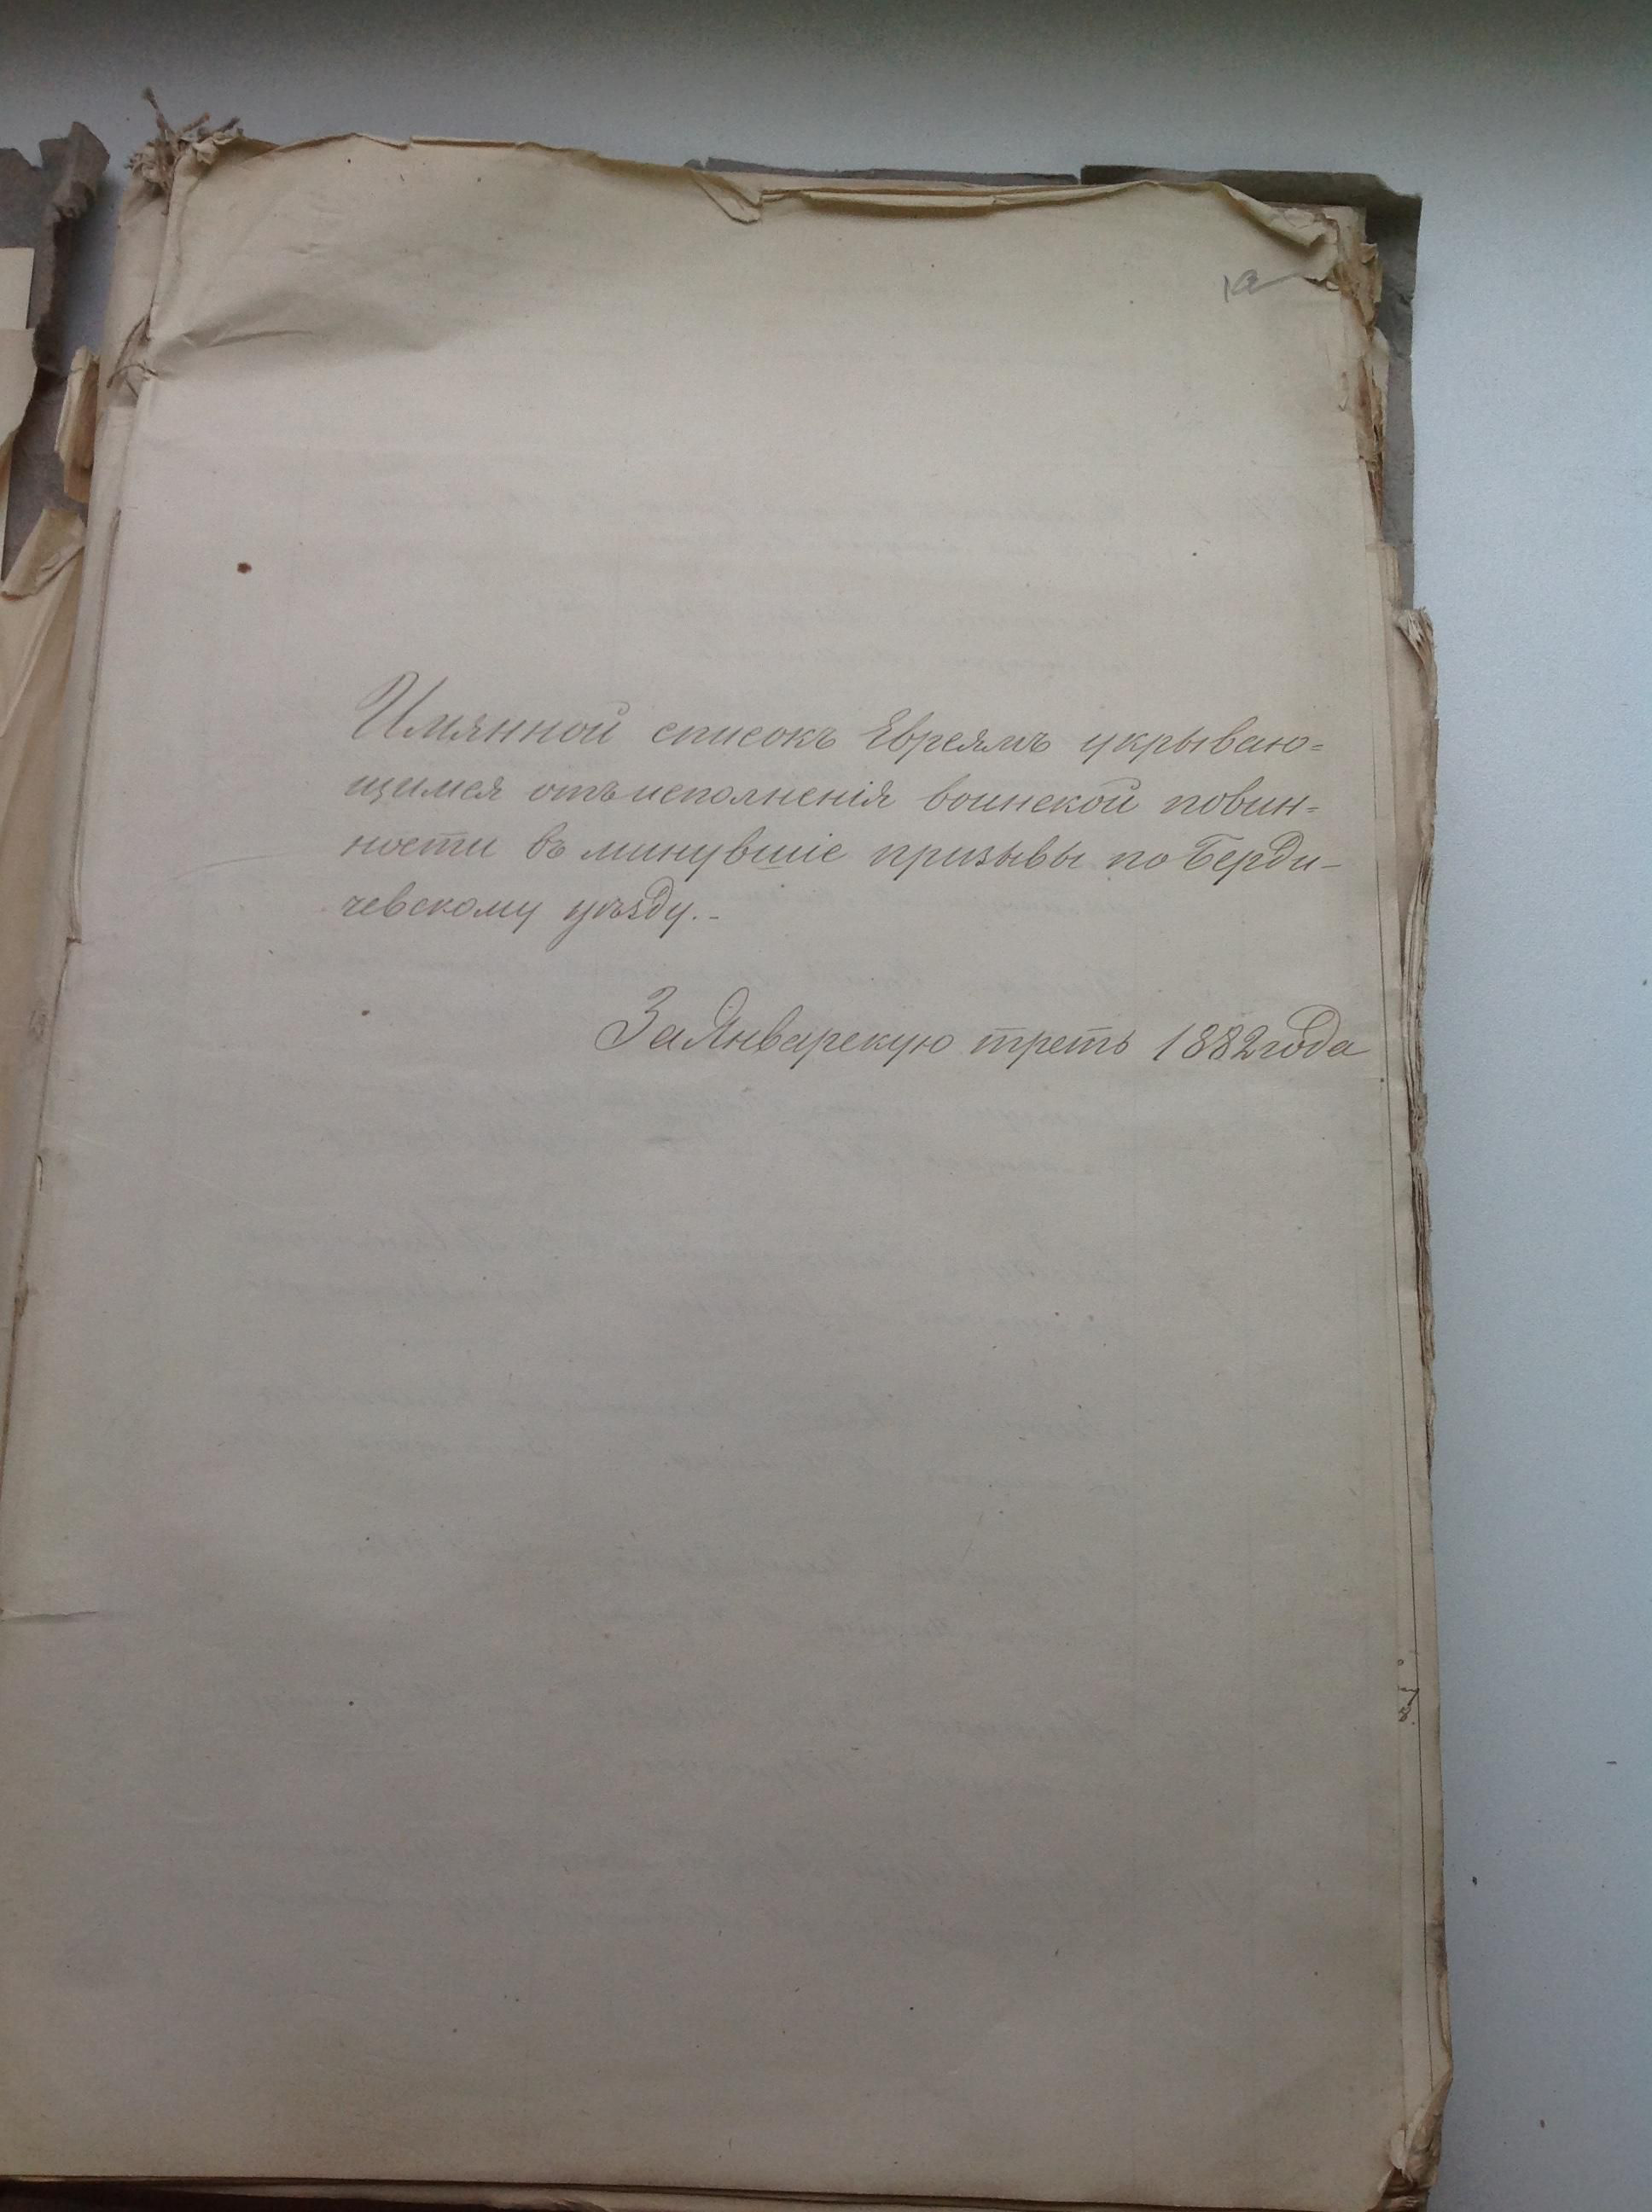 Имянной списокъ Евреямъ укрываю=
щимся отъ исполненія воинской повин=
ности въ минувшіе призывы по Берди-
чевскому уѣзду.-
За Январскую треть 1882 года